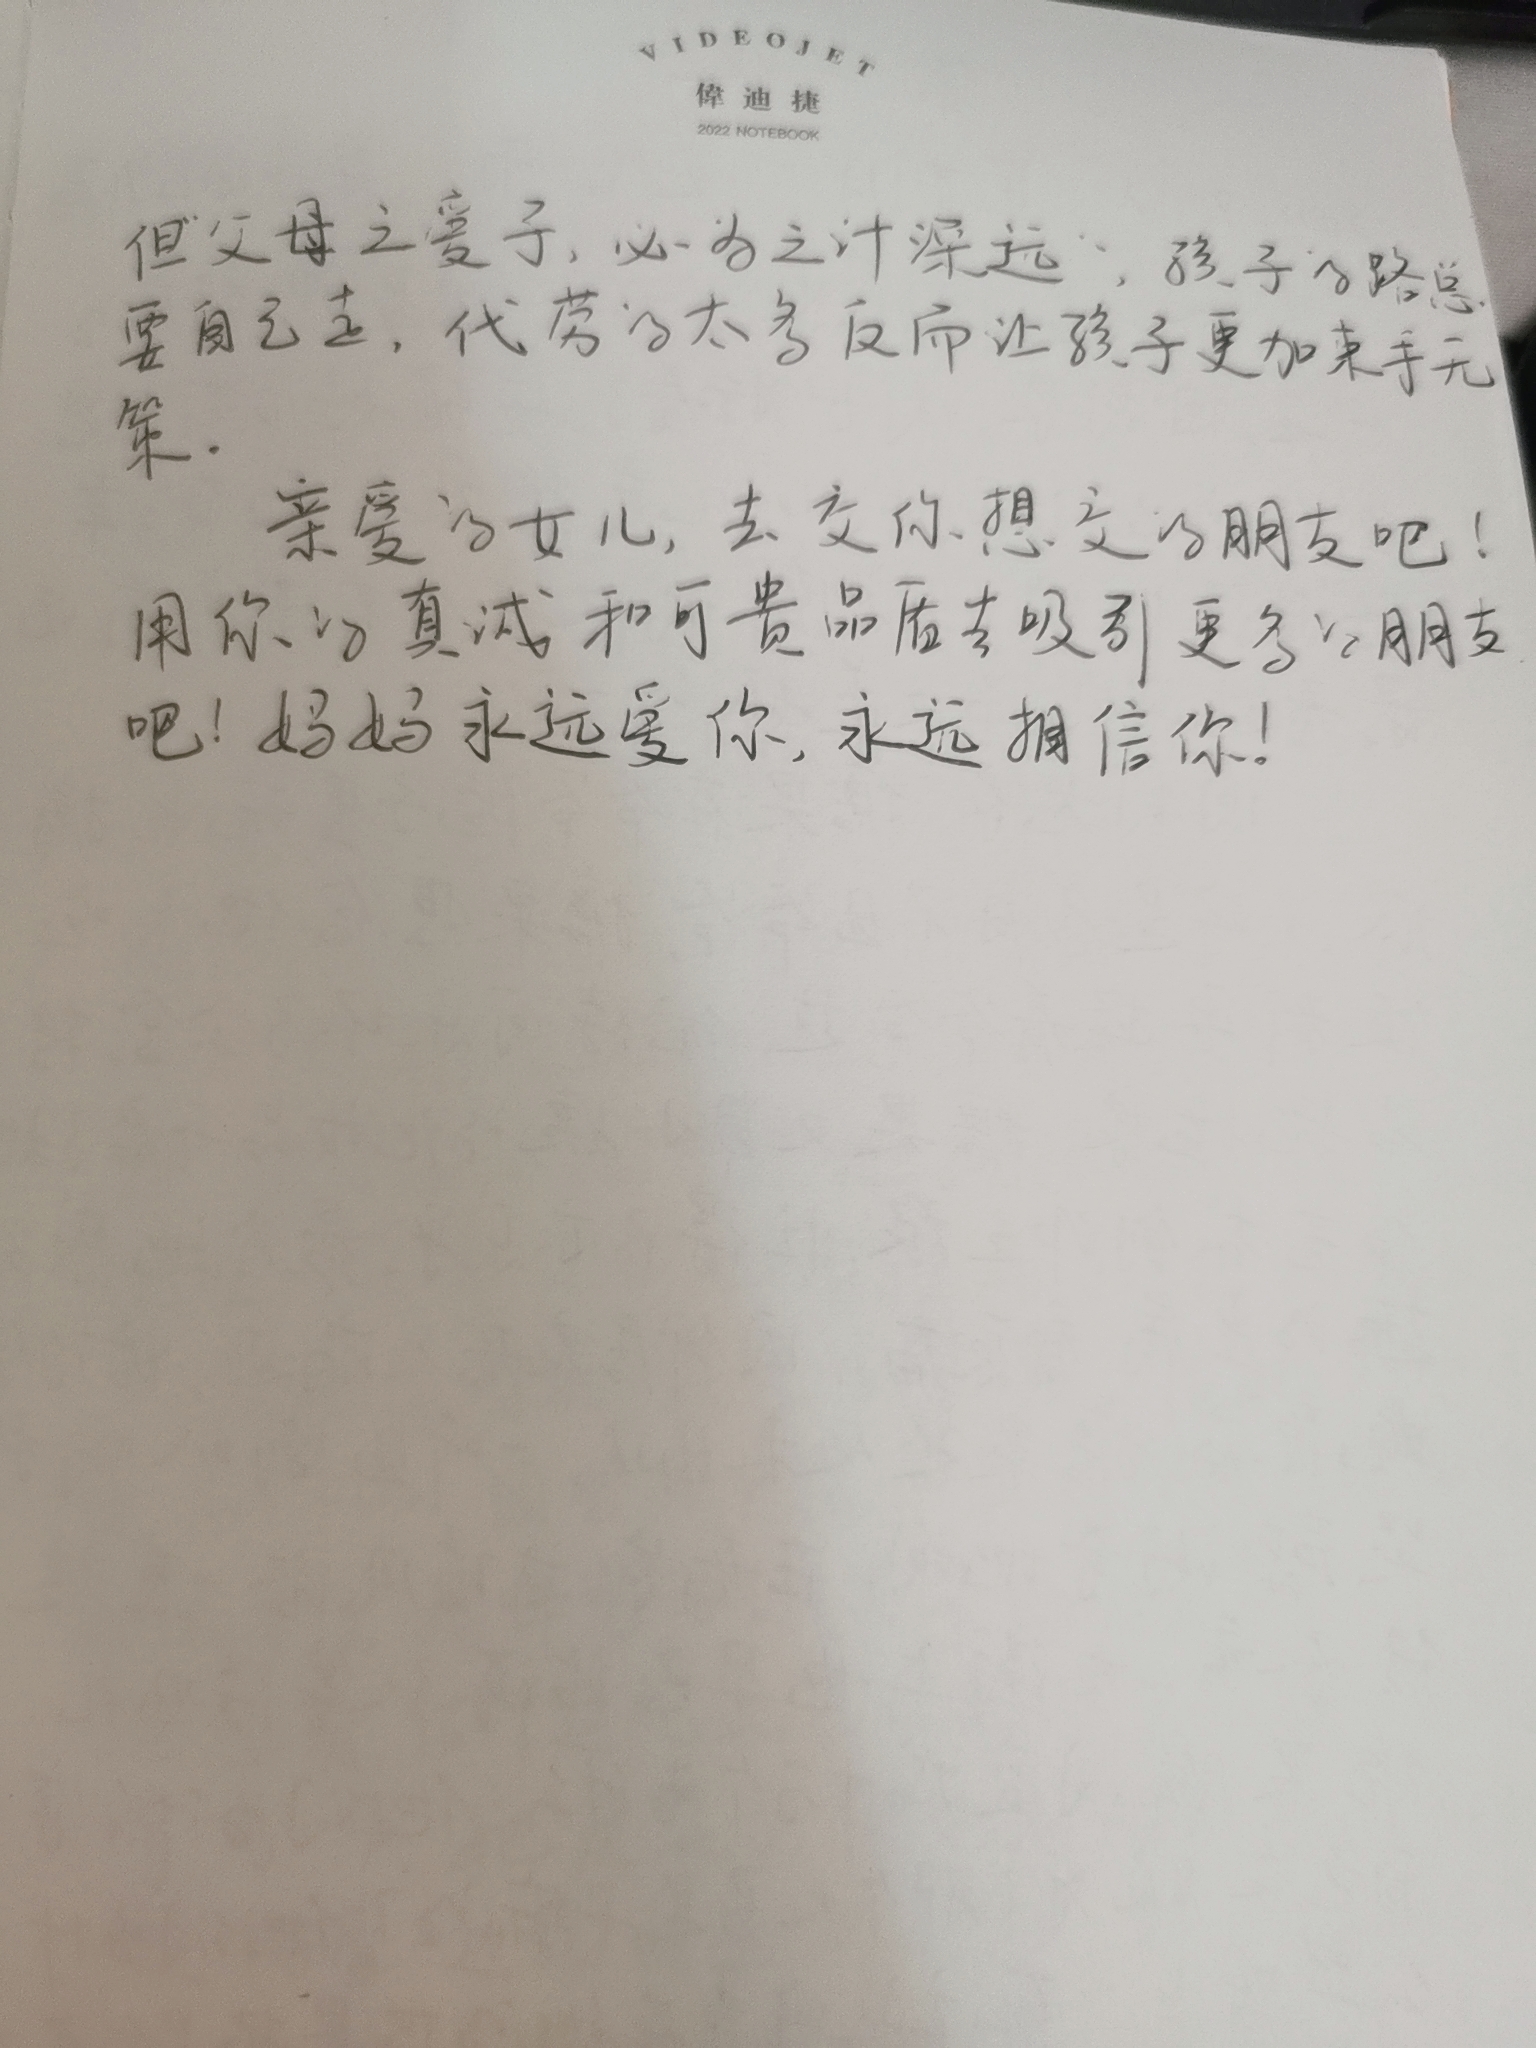 VIDEOJET
偉迪捷
2022 NOTEBOOK
但“父母之爱子,必为之计深远”,孩子的路总
要自己走,代劳的太多反而让孩子更加束手无
策.
亲爱的女儿,去交你想交的朋友吧!
用你的真诚和可贵品质去吸引更多的朋友
吧!妈妈永远爱你,永远相信你!